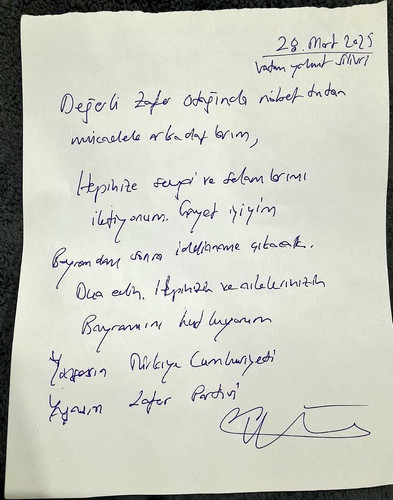 28. Mart 2025
vatan yahut Silivri
Değerli Zafer otağında nöbet tutan
mücadele arkadaşlarım,
Hepinize sevgi ve selamlarımı
iletiyorum. Gayet iyiyim
Bayramdan sonra iddianame çıkacak.
Dua edin. Hepinizin ve ailelerinizin
Bayramını kutluyorum
Yaşasın Türkiye Cumhuriyeti
Yaşasın Zafer Partisi